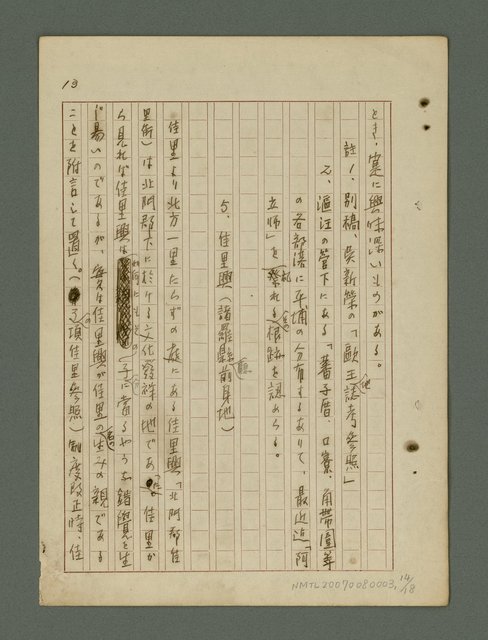 13
とき、実に興味深いものがある。
註1、別稿、吳新榮の「歐王誌考参照」
2、漚汪の管下にある「蕃子厝、口寮、角帶圍等
の各部落に平埔の分布するありて、最近迄「阿
立師」を祭れる根跡を認めらる。
5、佳里興(諸羅縣前身地)
佳里より北方一里たらずの庭にある佳里興「北門郡佳
里街)は北門郡下に於ける文化發祥の地であ。佳里か
ら見れば佳里興は 子に當るやうな錯覺を生
じ易いのであるが、每々は佳里興が佳里の生みの親である
ことを附言して置く。(3項佳里参照)制度改正時、佳
NMTL20070080003, 14/18